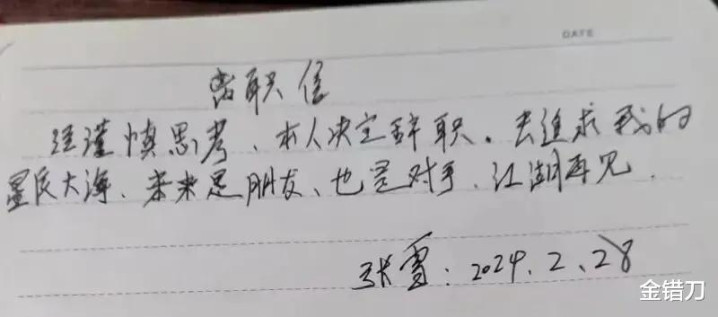 DATE
离职信
经谨慎思考、本人决定辞职。去追求我的
星辰大海、未来是朋友、也是对手、江湖再见.
张雪: 2024.2.28
金错刀